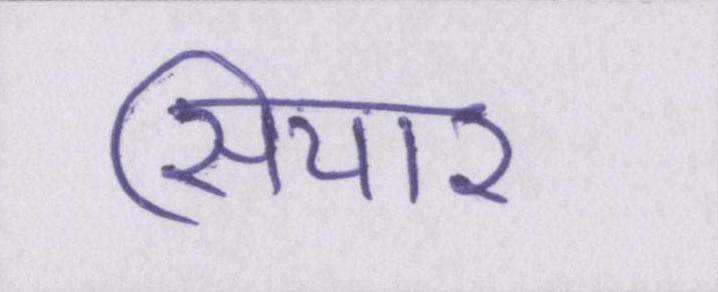 सियार